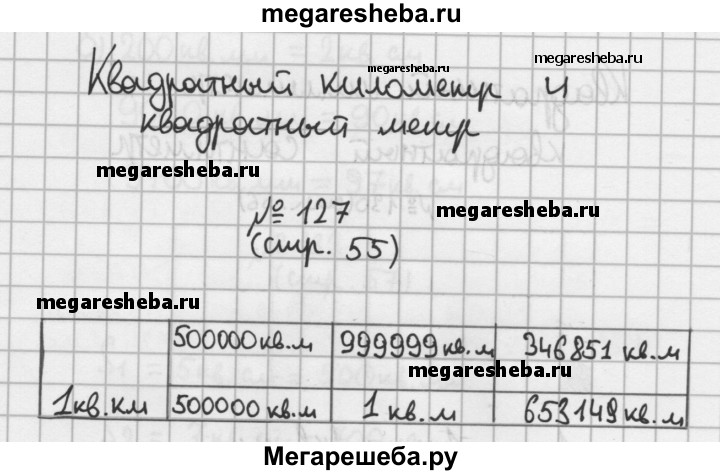 megaresheba.ru
Квадратный километр и
megaresheba.ru
megaresheba.ru
квадратный метр
megaresheba.ru
№ 127
megaresheba.ru
(стр. 55)
megaresheba.ru
500000 кв.м 999999 кв.м 346851 кв.м
megaresheba.ru
1 кв.км 500000 кв.м 1 кв.м 653149 кв.м
Мегарешеба.ру